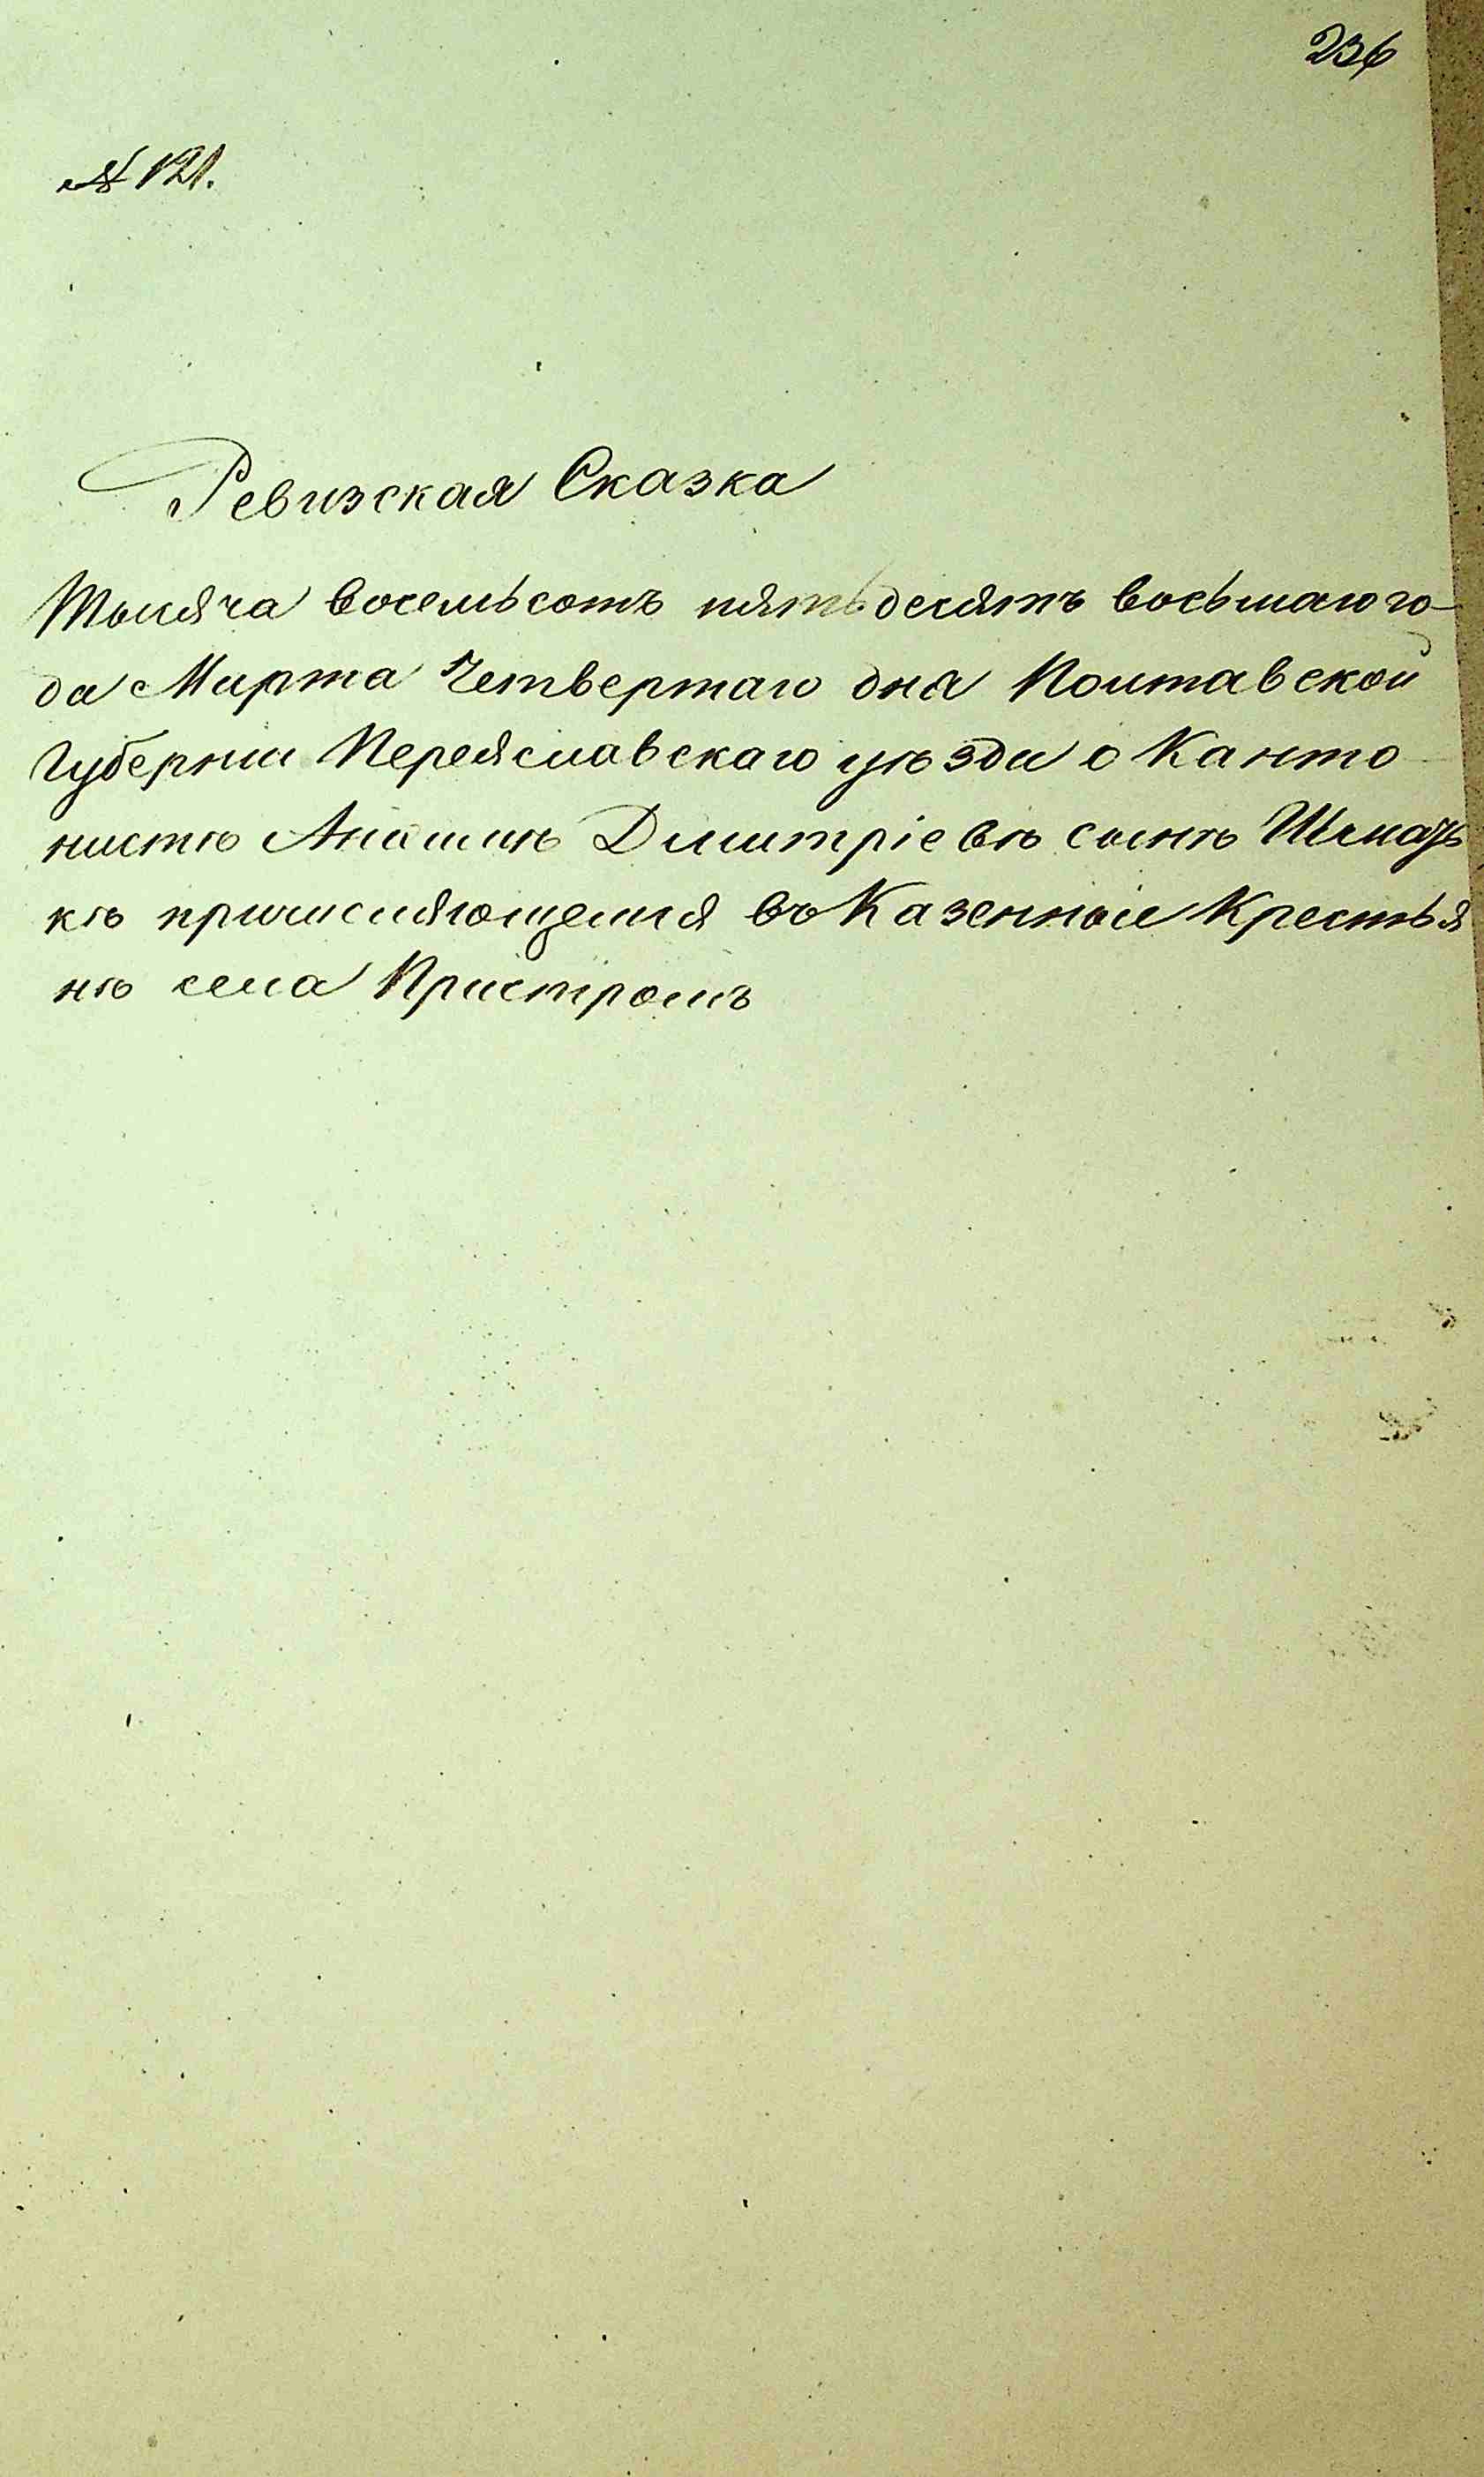 236
№ 121.
Ревизская Сказка
Тысяча восемьсотъ пятьдесятъ восьмаго го-
да Марта Четвертаго дня Полтавской
Губерніи Переяславскаго уѣзда о Канто
нистѣ Димитріевѣ сынѣ
кѣ причисляющемся въ Казенное Крестья
нѣ села Пристромъ